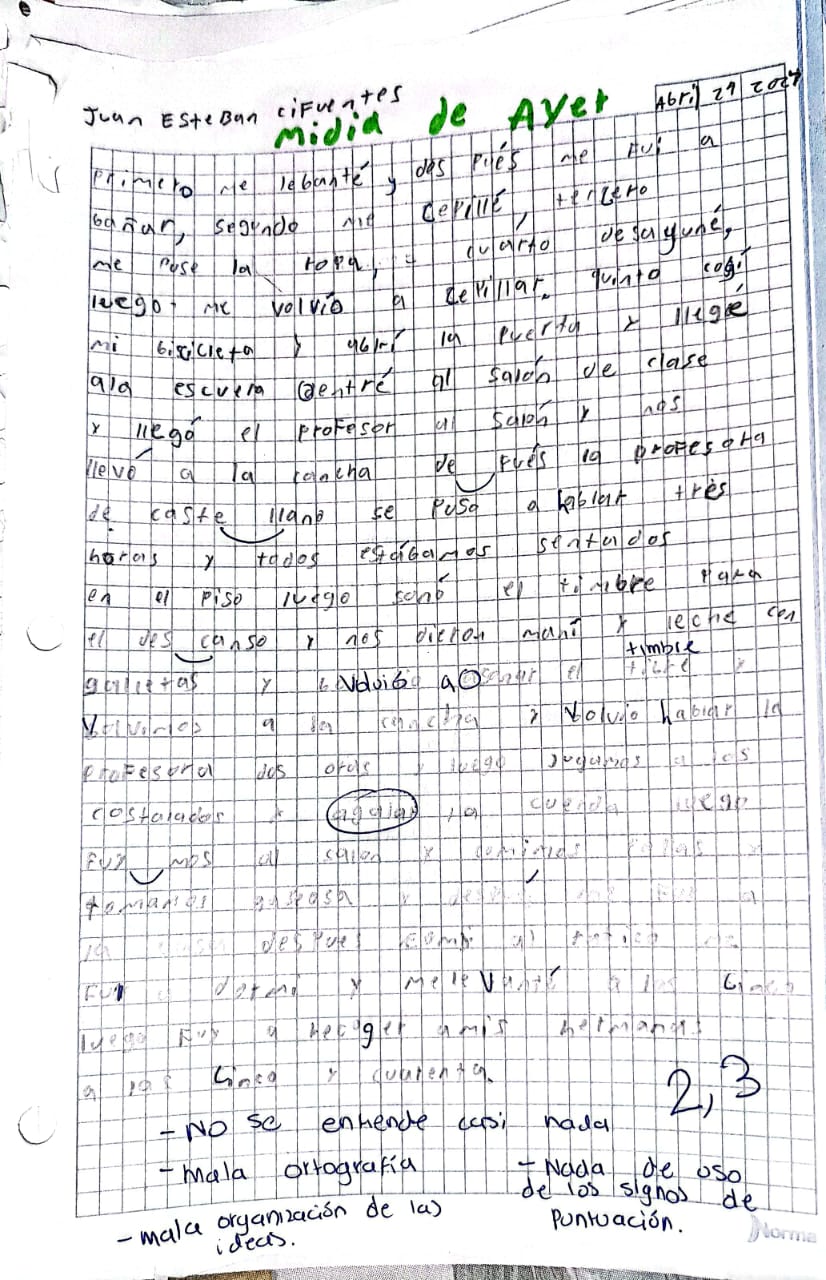 Juan Esteban cifuentes
Midia de Ayer
Abril 29
Primero me lebanté y des Pués me Fui a
bañar, segundo me cepillé, tercero
me puse la ropa, cuarto desayuné,
luego me volvio a cepillar. quinto cogí
mi bicicleta y abrí la puerta y llegé
ala escuela entré al salón de clase
y llegó el profesor al salón y nos
llevó a la cancha de Pués la profesora
de caste llano se puso a hablar tres
horas y todos estábamos sentados
en el piso luego sonó el timbre para
el des canso y nos dieron maní y leche con
timbre
galletas y Volvió a sonar el tibre y
Volvimos a la cancha y Volvio hablar la
profesora dos oras y luego jugamos a los
costalados y la cuerda luego
Fuy mos al salon y comimos papas y
tomamos gaseosa y
la despues comi
Fuy a dormi y me leVanté a las Cinco
luego Fuy a recoger amis hermanas
a las Cinco y cuarenta.
2,3
- NO se entiende casi nada
- Mala ortografía
- Nada de uso
de los signos de
Puntuación.
- mala organización de las
ideas.
Norma